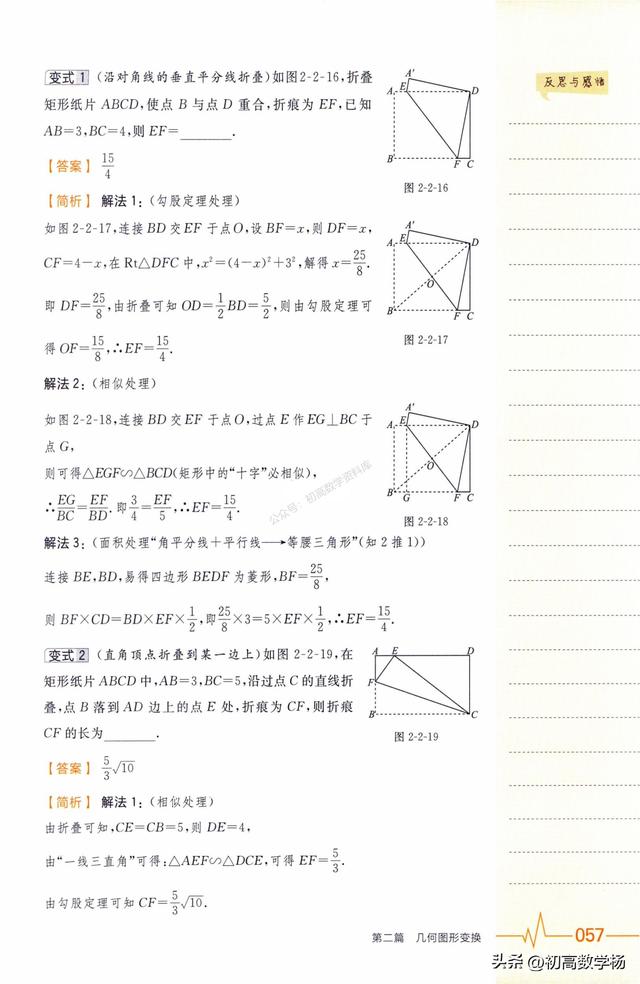 变式1（沿对角线的垂直平分线折叠）如图2-2-16,折叠
矩形纸片ABCD,使点B与点D重合,折痕为EF,已知
AB=3,BC=4,则EF=________.
【答案】15/4
【简析】解法1:(勾股定理处理)
如图2-2-17,连接BD交EF于点O,设BF=x,则DF=x,
CF=4-x,在Rt△DFC中,x²=(4-x)²+3²,解得x=25/8.
即DF=25/8,由折叠可知OD=1/2BD=5/2,则由勾股定理可
得OF=15/8,∴EF=15/4.
解法2:(相似处理)
如图2-2-18,连接BD交EF于点O,过点E作EG⊥BC于
点G,
则可得△EGF∽△BCD(矩形中的“十字”必相似),
∴EG/BC=EF/BD.即3/4=EF/5,∴EF=15/4.
解法3:(面积处理“角平分线+平行线→等腰三角形”(知2推1))
连接BE,BD,易得四边形BEDF为菱形,BF=25/8,
则BF×CD=BD×EF×1/2,即25/8×3=5×EF×1/2,∴EF=15/4.
变式2（直角顶点折叠到某一边上）如图2-2-19,在
矩形纸片ABCD中,AB=3,BC=5,沿过点C的直线折
叠,点B落到AD边上的点E处,折痕为CF,则折痕
CF的长为________.
【答案】5/3√10
【简析】解法1:(相似处理)
由折叠可知,CE=CB=5,则DE=4,
由“一线三直角”可得:△AEF∽△DCE,可得EF=5/3.
由勾股定理可知CF=5/3√10.
A'
A E D
B F C
图2-2-16
A'
A E D
O
B F C
图2-2-17
A'
A E D
O
B G F C
图2-2-18
A E D
F
B C
图2-2-19
反思与感悟
公众号:初高数学资料库
第二篇 几何图形变换
057
头条@初高数学杨